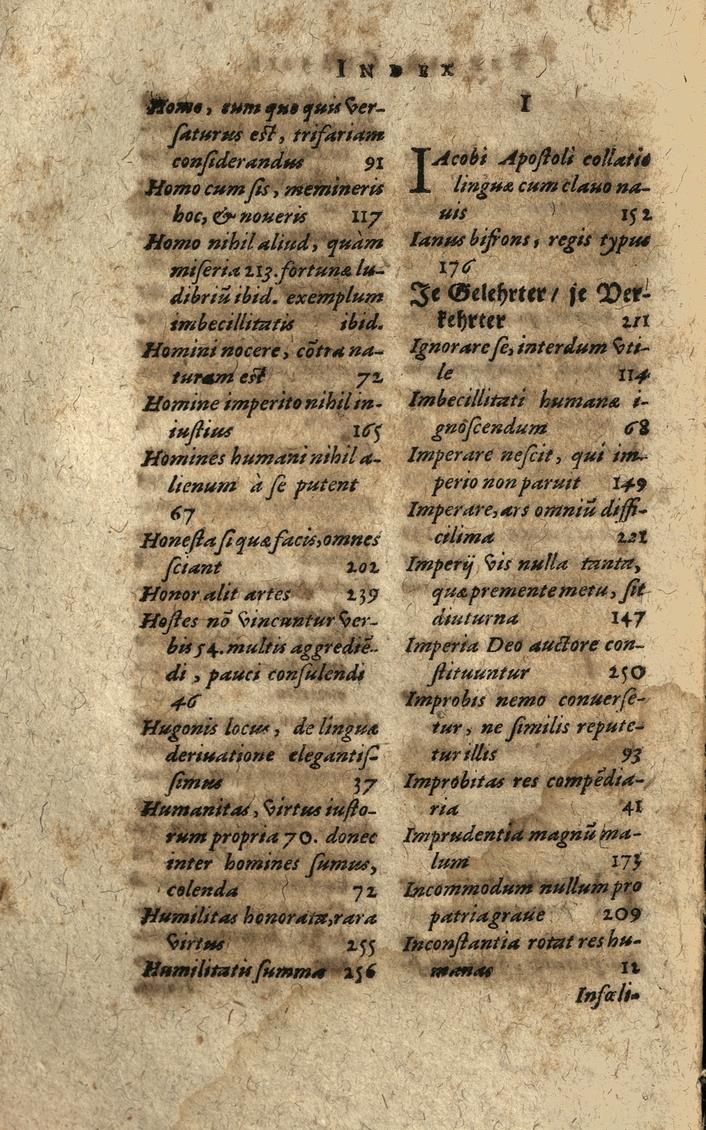 INDEX
Homo, cum quo quis ver-
ſaturus eſt, trifariam
conſiderandus 91
Homo cum ſis, memineris
hoc, & noueris 117
Homo nihil aliud, quàm
miſeria 213. fortunæ lu-
dibriū ibid. exemplum
imbecillitatis ibid.
Homini nocere, cōtra na-
turam eſt 72
Homine imperito nihil in-
iuſtius 165
Homines humani nihil a-
lienum à ſe putent
67
Honeſta ſi quæ facis, omnes
ſciant 202
Honor alit artes 239
Hoſtes nō vincuntur ver-
bis 54. multis aggrediē-
di, pauci conſulendi
46
Hugonis locus, de linguæ
deriuatione elegantiſ-
ſimus 37
Humanitas, virtus iuſto-
rum propria 70. donec
inter homines ſumus,
colenda 72
Humilitas honorata, rara
virtus 255
Humilitatis ſumma 256
I
IAcobi Apoſtoli collatio
linguæ cum clauo na-
uis 152
Ianus bifrons, regis typus
176
Je Gelehrter / je Ver-
kehrter 211
Ignorare ſe, interdum vti-
le 114
Imbecillitati humanæ i-
gnoſcendum 68
Imperare neſcit, qui im-
perio non paruit 149
Imperare, ars omniū diffi-
cilima 221
Imperij vis nulla tanta,
quæ premente metu, ſit
diuturna 147
Imperia Deo auctore con-
ſtituuntur 250
Improbis nemo conuerſe-
tur, ne ſimilis repute-
tur illis 93
Improbitas res compēdia-
ria 41
Imprudentia magnū ma-
lum 173
Incommodum nullum pro
patria graue 209
Inconſtantia rotat res hu-
manas 12
Infœli-